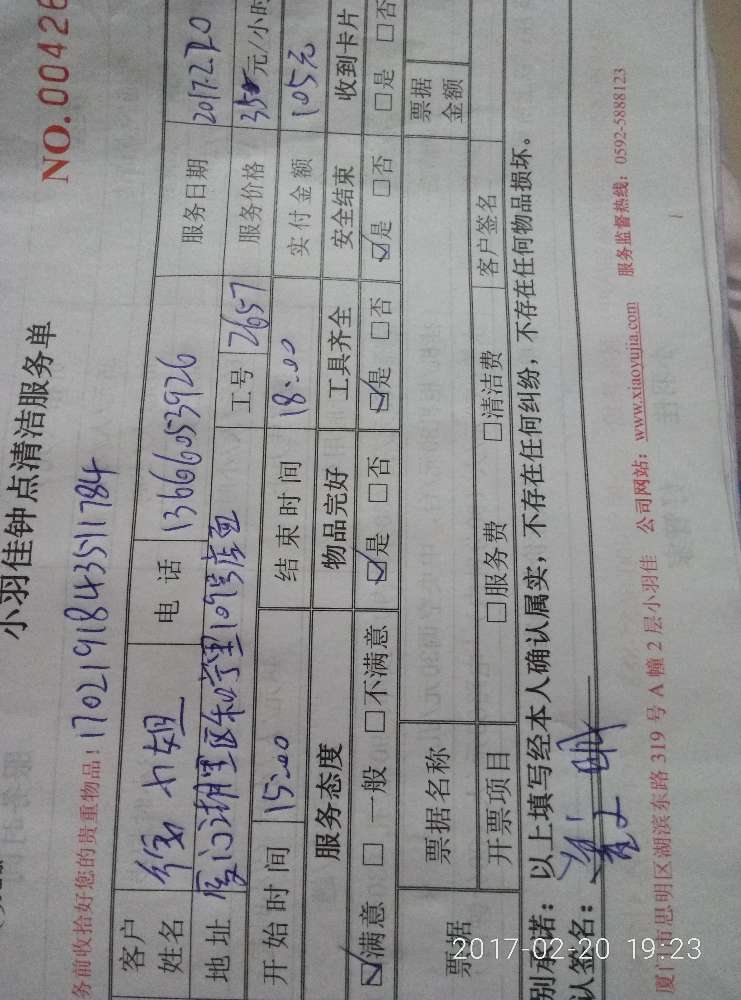 小羽佳钟点清洁服务单
NO.00426
务前收拾好您的贵重物品！1702191843511784
客户姓名 小姐 电话 13666053926 服务日期 2017.2.20
地址 厦门湖里区 工号 2657 服务价格 35元/小时
开始时间 15:00 结束时间 18:00 实付金额 105元
服务态度 物品完好 工具齐全 安全结束 收到卡片
☑满意 □一般 □不满意 ☑是 □否 ☑是 □否 ☑是 □否 □是 □否
票据 票据名称 票据金额
开票项目 □服务费 □清洁费 客户签名
别承诺：以上填写经本人确认属实，不存在任何纠纷，不存在任何物品损坏。
认签名：
厦门市思明区湖滨东路 319 号 A 幢 2 层小羽佳 公司网站：www.xiaoyujia.com 服务监督热线：0592-5888123
2017-02-20 19:23